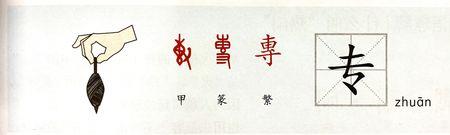 專
甲 篆 繁
专
zhuān